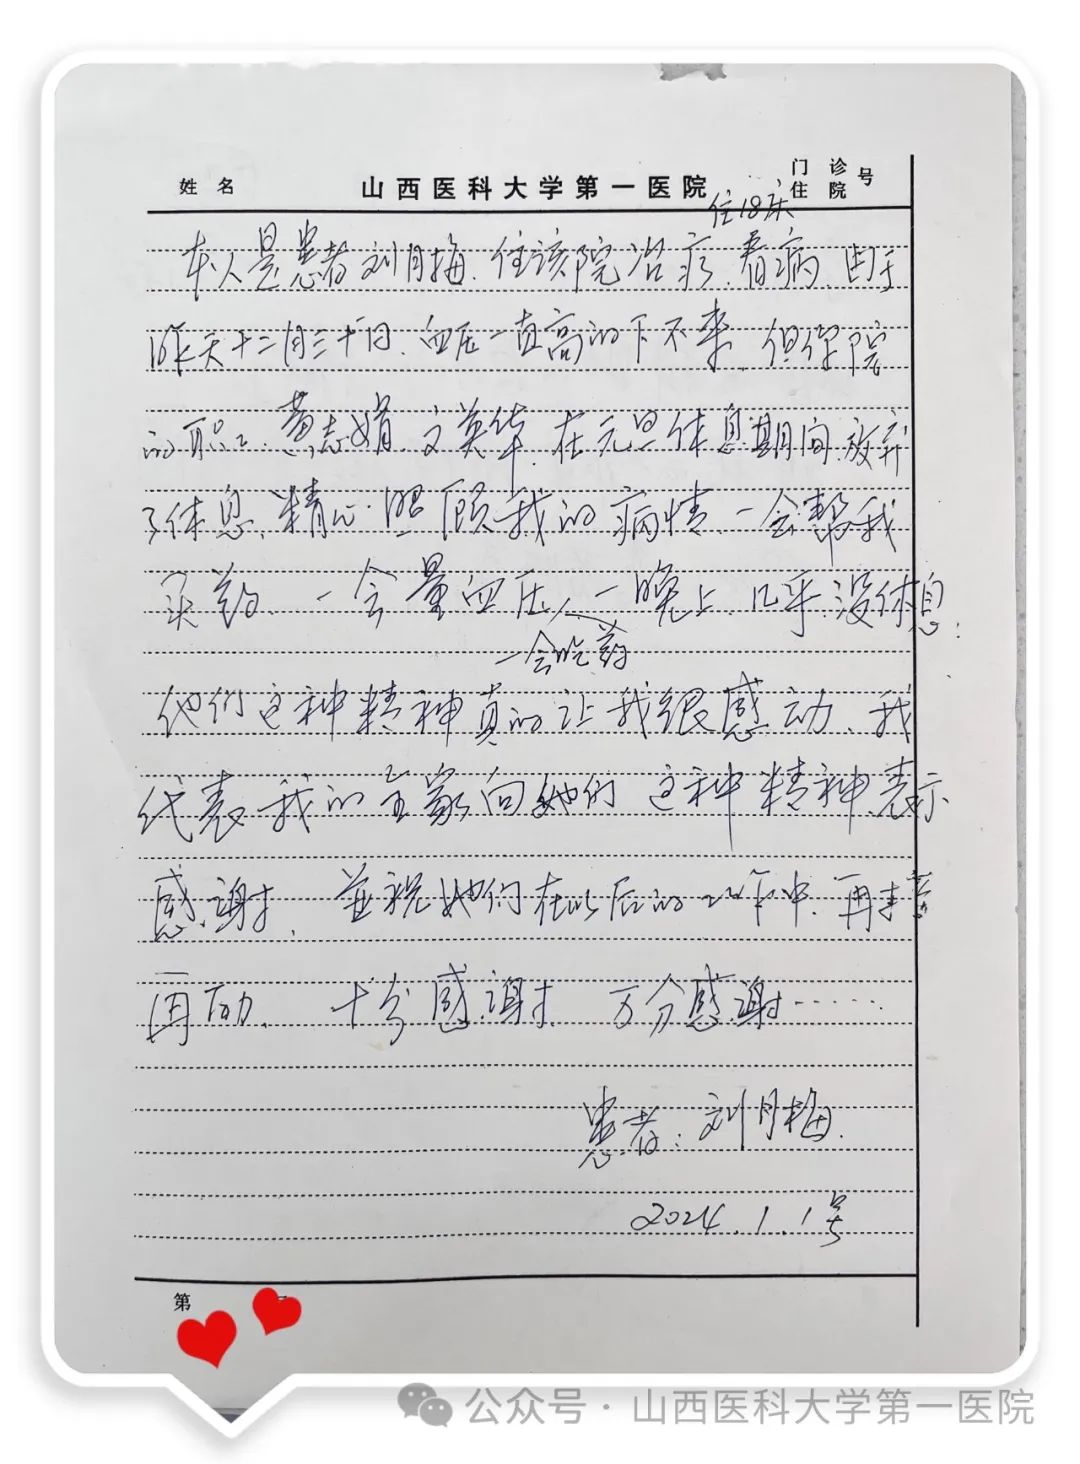 姓名 山西医科大学第一医院 门诊住院号
住18床
本人是患者刘月梅.住该院治疗.看病.由于
昨天十二月三十一日.血压一直高的下不来.但你院
的职工.黄志娟.文英华.在元旦休息期间.放弃
了休息.精心.照顾我的病情.一会帮我
买药.一会量血压 一晚上.几乎没休息:
一会吃药
他们这种精神真的让我很感动、我
代表我的全家向她们 这种精神表示
感谢. 并祝她们在以后的工作中.再接
再励. 十分感谢. 万分感谢……
患者:刘月梅.
2024.1.1号
第
公众号·山西医科大学第一医院